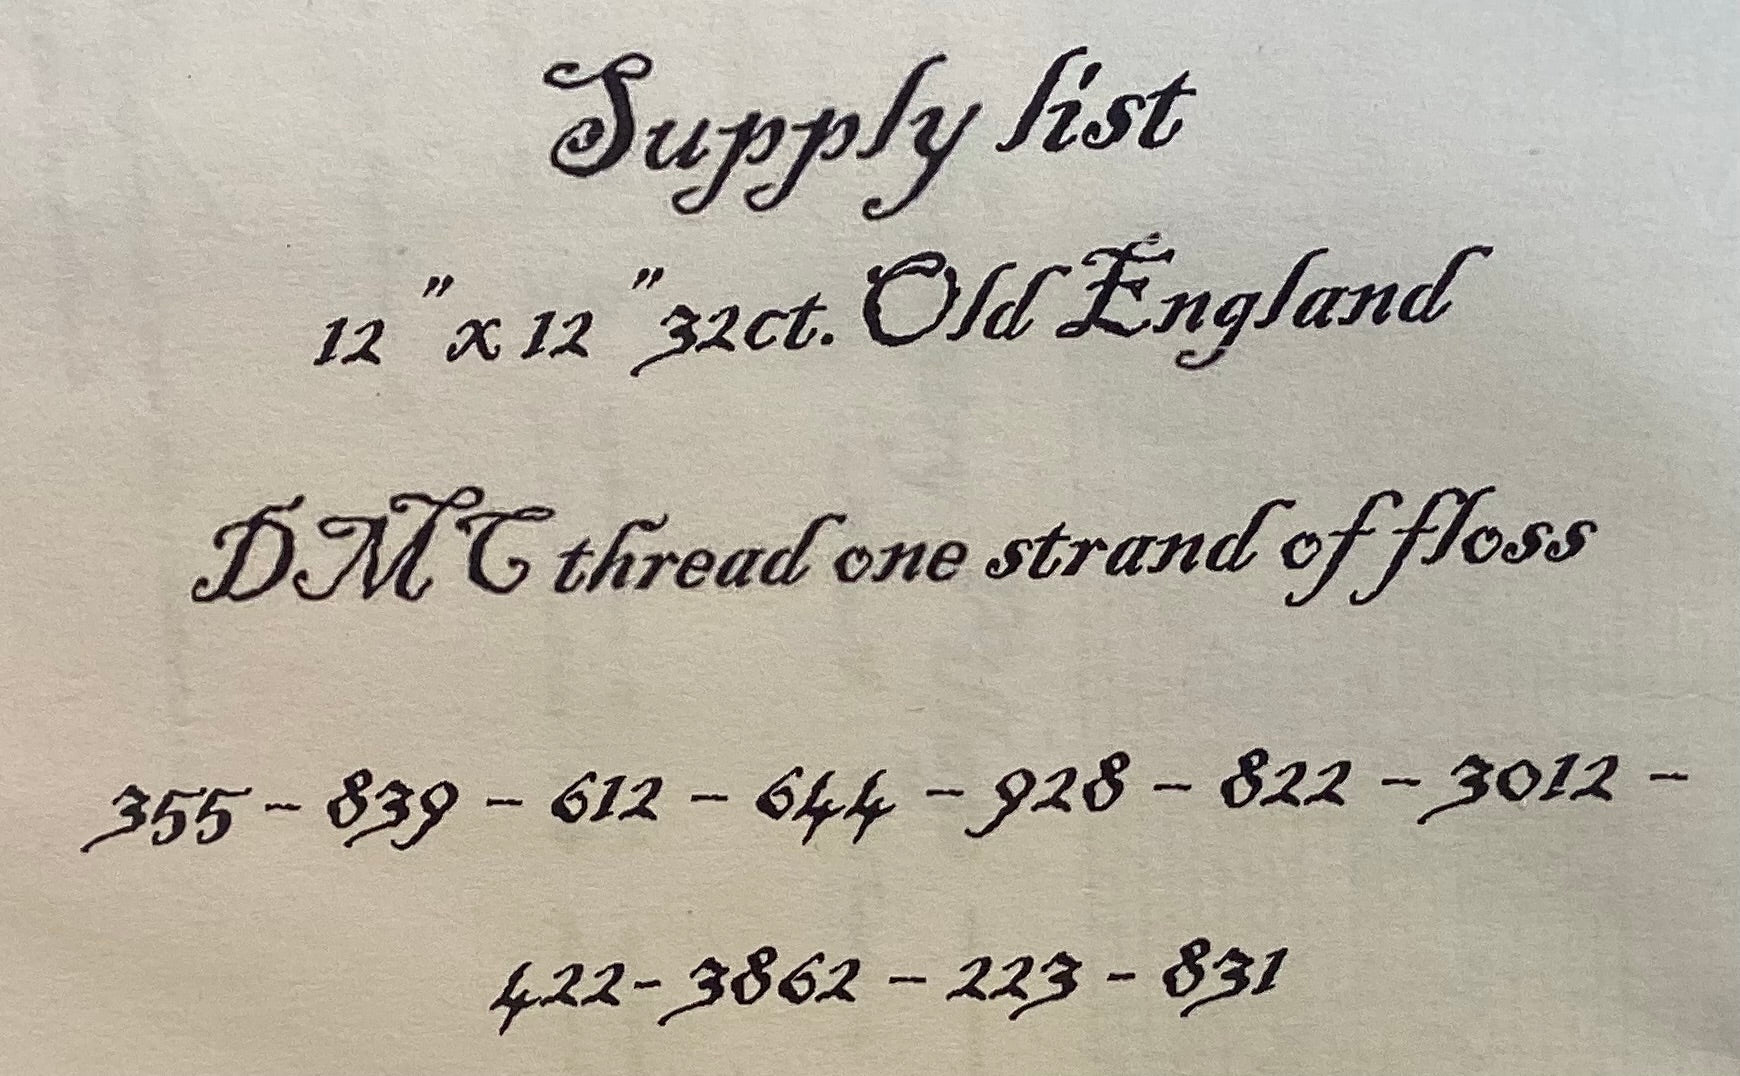 Supply list
12 "x 12 "32ct. Old England
DMC thread one strand of floss
355 - 839 - 612 - 644 - 928 - 822 - 3012 -
422- 3862 - 223 - 831